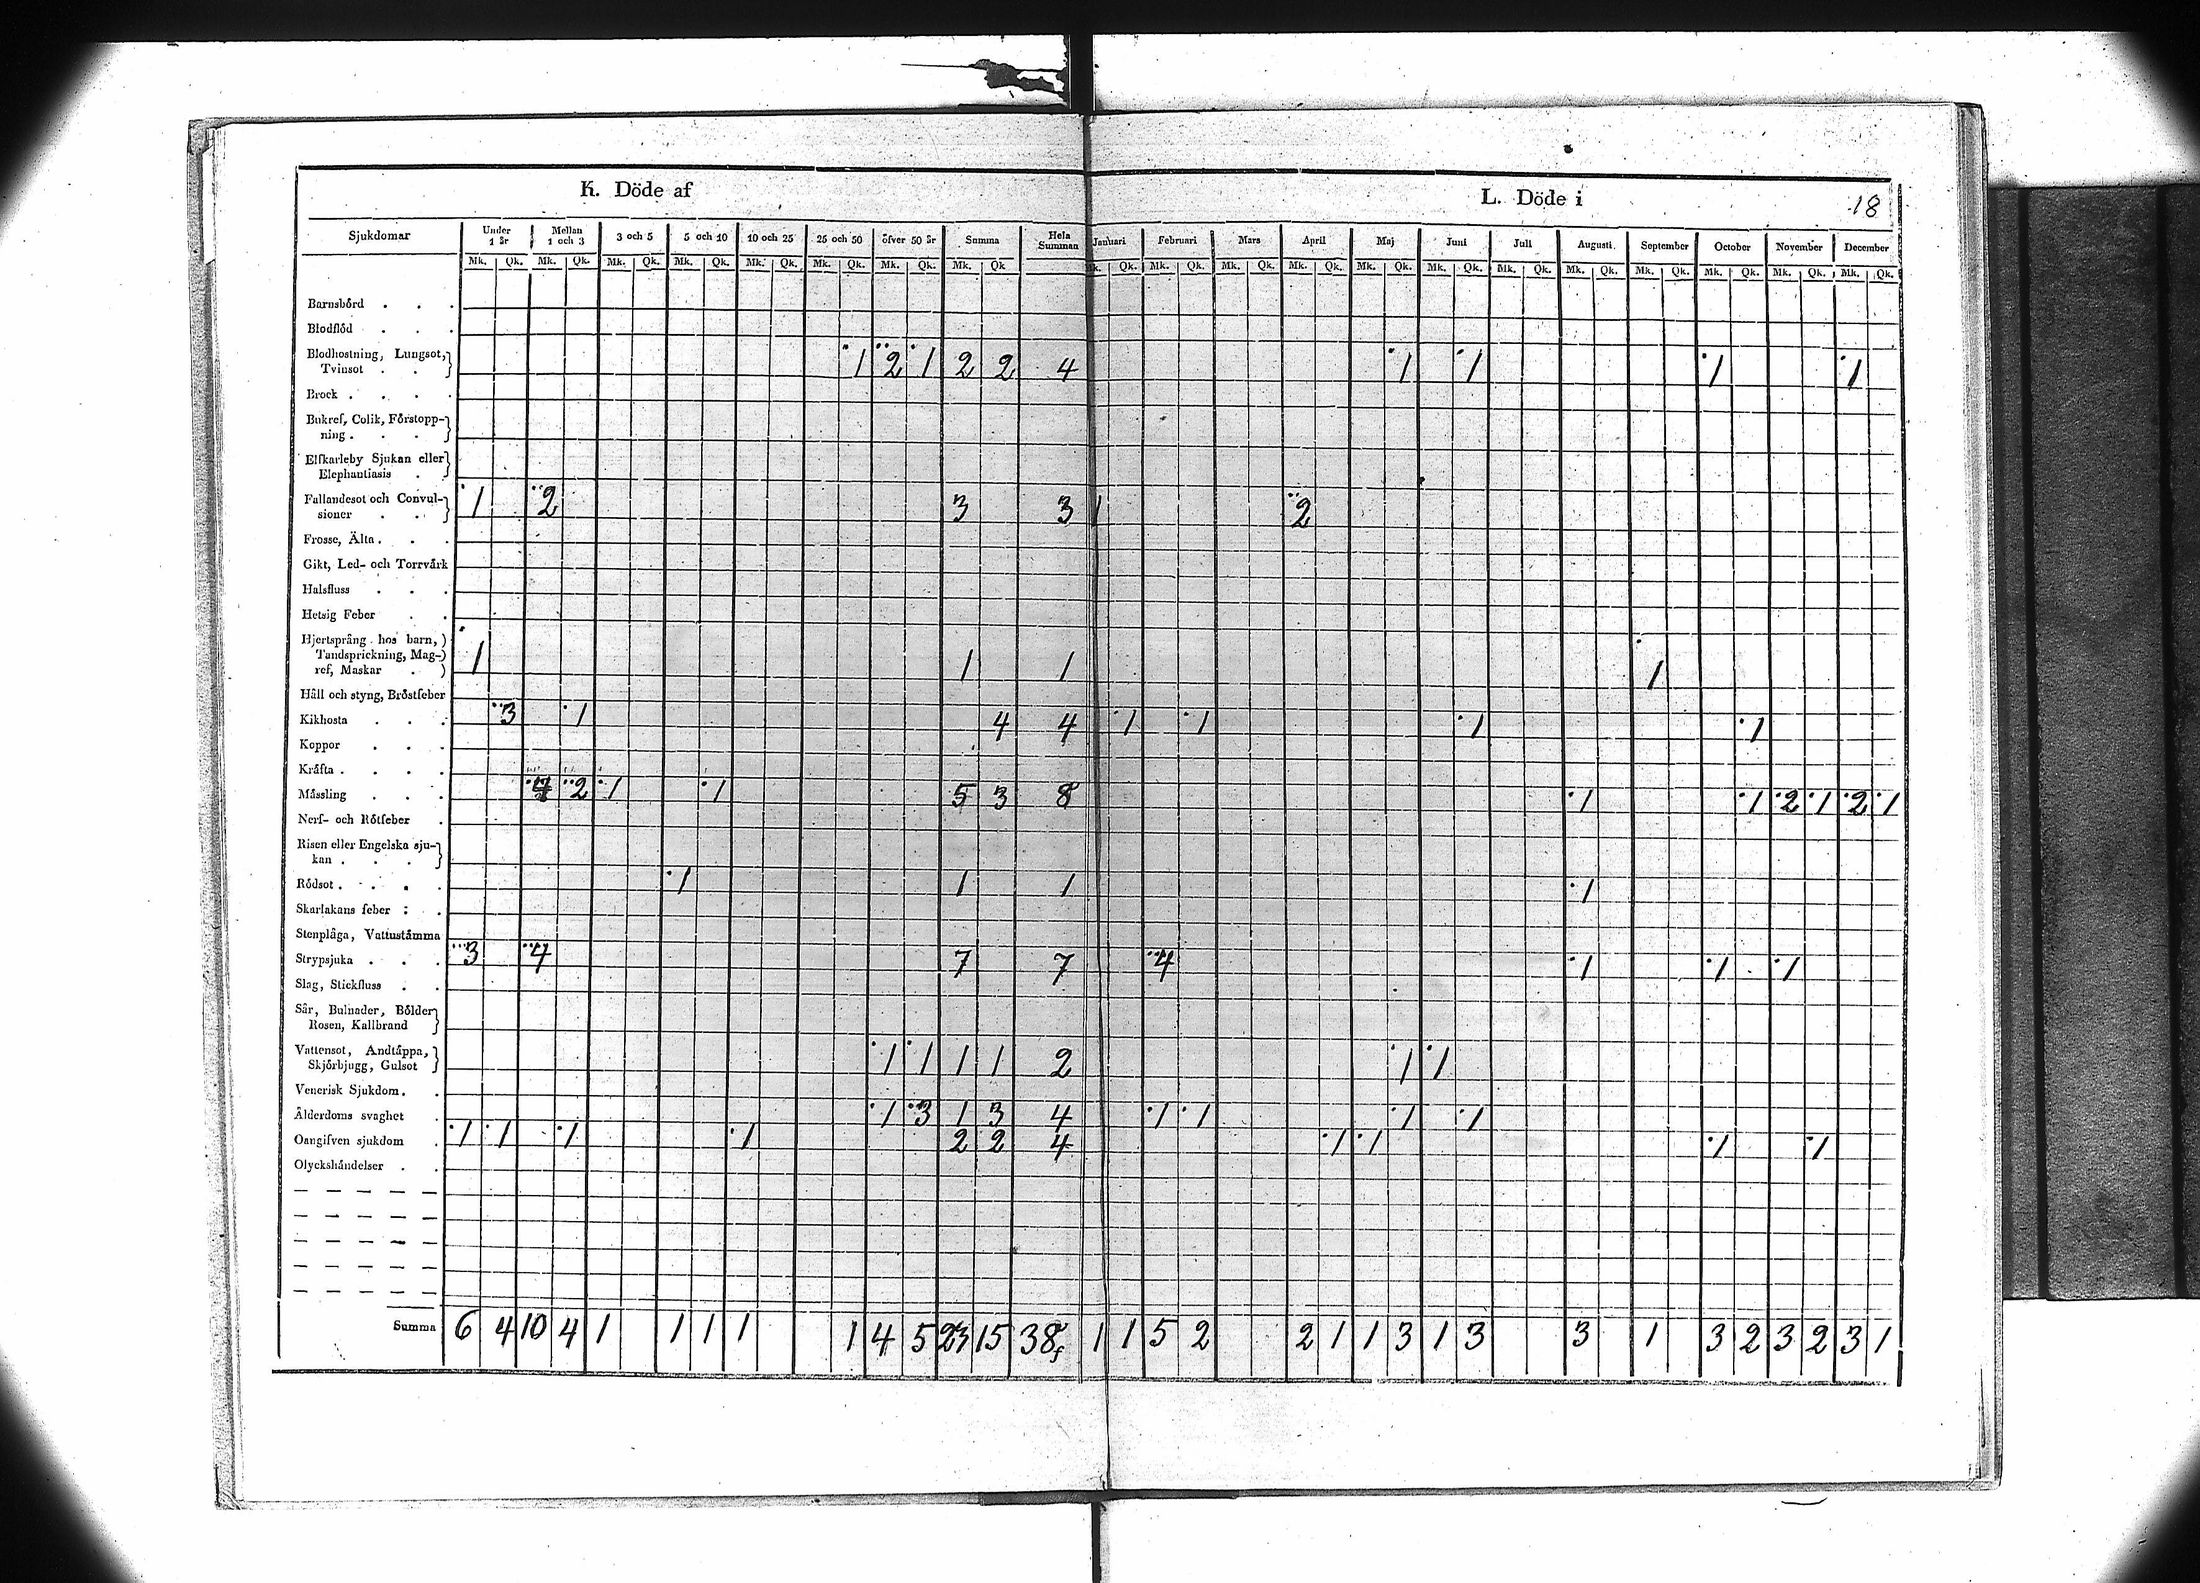 K. Döde af
L. Döde i
18
Sjukdomar Under 1 år Mellan 1 och 3 3 och 5 5 och 10 10 och 25 25 och 50 öfver 50 år Summa Hela Summan Januari Februari Mars April Maj Juni Juli Augusti September October November December
Mk. Qk. Mk. Qk. Mk. Qk. Mk. Qk. Mk. Qk. Mk. Qk. Mk. Qk. Mk. Qk Mk. Qk. Mk. Qk. Mk. Qk. Mk. Qk. Mk. Qk. Mk. Qk. Mk. Qk. Mk. Qk. Mk. Qk. Mk. Qk. Mk. Qk. Mk. Qk.
Barnsbörd . . .
Blodflöd . . .
Blodhostning, Lungsot,
Tvinsot . . 1 2 1 2 2 4 1 1 1 1
Brock . . . .
Bukref, Colik, Förstopp-
ning . . .
Elfkarleby Sjukan eller
Elephantiasis .
Fallandesot och Convul-
sioner . . 1 2 3 3 1 2
Frosse, Älta . . .
Gikt, Led- och Torrvårk
Halsfluss . . .
Hetsig Feber . .
Hjertsprång hos barn,
Tandsprickning, Mag-
ref, Maskar . 1 1 1 1
Håll och styng, Bröstfeber
Kikhosta . . . 3 1 4 4 1 1 1 1
Koppor . . .
Kräfta . . . .
Mässling . . . 4 2 1 1 5 3 8 1 1 2 1 2 1
Nerf- och Rötfeber .
Risen eller Engelska sju-
kan . . .
Rödsot . . . . 1 1 1 1
Skarlakans feber : .
Stenplåga, Vattustämma
Strypsjuka . . . 3 4 7 7 4 1 1 1
Slag, Stickfluss . .
Sår, Bulnader, Bölder
Rosen, Kallbrand
Vattensot, Andtäppa,
Skjörbjugg, Gulsot 1 1 1 1 2 1 1
Venerisk Sjukdom . .
Ålderdoms svaghet . 1 3 1 3 4 1 1 1 1
Oangifven sjukdom . 1 1 1 1 2 2 4 1 1 1 1
Olyckshändelser . .
Summa 6 4 10 4 1 1 1 1 1 4 5 23 15 38 1 1 5 2 2 1 1 3 1 3 3 1 3 2 3 2 3 1